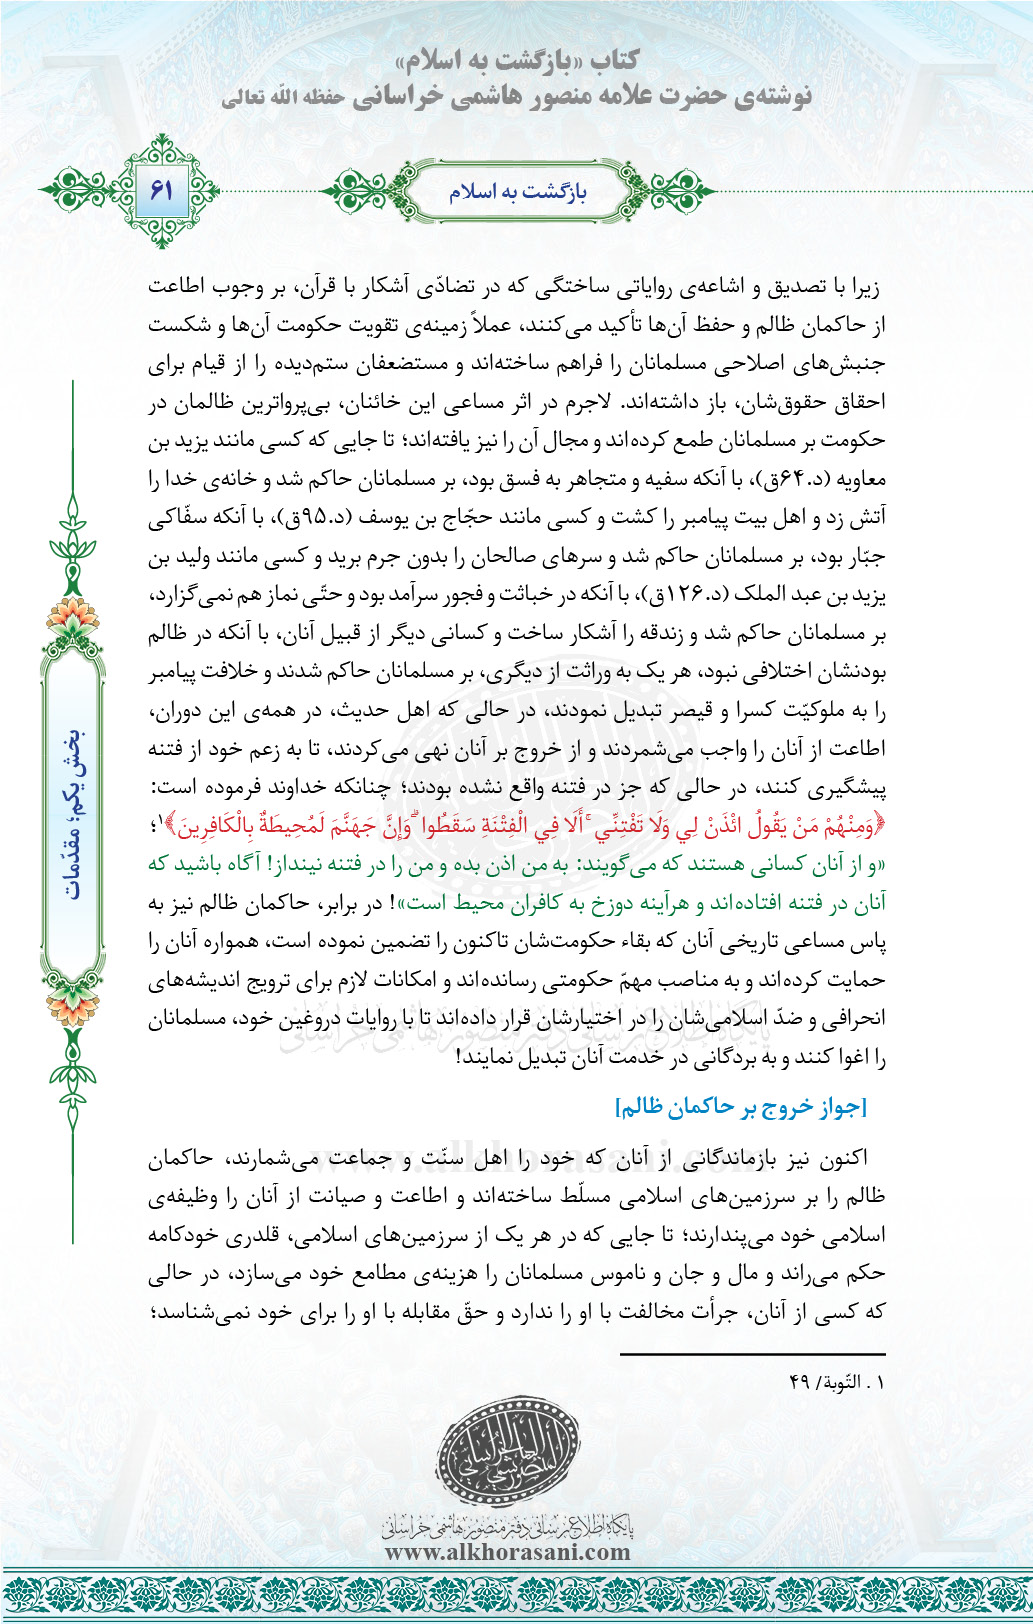 کتاب «بازگشت به اسلام»
نوشته‌ی حضرت علامه منصور هاشمی خراسانی حفظه الله تعالی
۶۱
بازگشت به اسلام
زیرا با تصدیق و اشاعه‌ی روایاتی ساختگی که در تضادّی آشکار با قرآن، بر وجوب اطاعت
از حاکمان ظالم و حفظ آن‌ها تأکید می‌کنند، عملاً زمینه‌ی تقویت حکومت آن‌ها و شکست
جنبش‌های اصلاحی مسلمانان را فراهم ساخته‌اند و مستضعفان ستم‌دیده را از قیام برای
احقاق حقوق‌شان، باز داشته‌اند. لاجرم در اثر مساعی این خائنان، بی‌پرواترین ظالمان در
حکومت بر مسلمانان طمع کرده‌اند و مجال آن را نیز یافته‌اند؛ تا جایی که کسی مانند یزید بن
معاویه (د.۶۴ق)، با آنکه سفیه و متجاهر به فسق بود، بر مسلمانان حاکم شد و خانه‌ی خدا را
آتش زد و اهل بیت پیامبر را کشت و کسی مانند حجّاج بن یوسف (د.۹۵ق)، با آنکه سفّاکی
جبّار بود، بر مسلمانان حاکم شد و سرهای صالحان را بدون جرم برید و کسی مانند ولید بن
یزید بن عبد الملک (د.۱۲۶ق)، با آنکه در خباثت و فجور سرآمد بود و حتّی نماز هم نمی‌گزارد،
بر مسلمانان حاکم شد و زندقه را آشکار ساخت و کسانی دیگر از قبیل آنان، با آنکه در ظالم
بودنشان اختلافی نبود، هر یک به وراثت از دیگری، بر مسلمانان حاکم شدند و خلافت پیامبر
را به ملوکیّت کسرا و قیصر تبدیل نمودند، در حالی که اهل حدیث، در همه‌ی این دوران،
اطاعت از آنان را واجب می‌شمردند و از خروج بر آنان نهی می‌کردند، تا به زعم خود از فتنه
پیشگیری کنند، در حالی که جز در فتنه واقع نشده بودند؛ چنانکه خداوند فرموده است:
﴿وَمِنْهُمْ مَنْ يَقُولُ ائْذَنْ لِي وَلَا تَفْتِنِّي ۚ أَلَا فِي الْفِتْنَةِ سَقَطُوا ۗ وَإِنَّ جَهَنَّمَ لَمُحِيطَةٌ بِالْكَافِرِينَ﴾۱؛
«و از آنان کسانی هستند که می‌گویند: به من اذن بده و من را در فتنه نینداز! آگاه باشید که
آنان در فتنه افتاده‌اند و هرآینه دوزخ به کافران محیط است»! در برابر، حاکمان ظالم نیز به
پاس مساعی تاریخی آنان که بقاء حکومت‌شان تاکنون را تضمین نموده است، همواره آنان را
حمایت کرده‌اند و به مناصب مهمّ حکومتی رسانده‌اند و امکانات لازم برای ترویج اندیشه‌های
انحرافی و ضدّ اسلامی‌شان را در اختیارشان قرار داده‌اند تا با روایات دروغین خود، مسلمانان
را اغوا کنند و به بردگانی در خدمت آنان تبدیل نمایند!
[جواز خروج بر حاکمان ظالم]
اکنون نیز بازماندگانی از آنان که خود را اهل سنّت و جماعت می‌شمارند، حاکمان
ظالم را بر سرزمین‌های اسلامی مسلّط ساخته‌اند و اطاعت و صیانت از آنان را وظیفه‌ی
اسلامی خود می‌پندارند؛ تا جایی که در هر یک از سرزمین‌های اسلامی، قلدری خودکامه
حکم می‌راند و مال و جان و ناموس مسلمانان را هزینه‌ی مطامع خود می‌سازد، در حالی
که کسی از آنان، جرأت مخالفت با او را ندارد و حقّ مقابله با او را برای خود نمی‌شناسد؛
۱ . التّوبة/ ۴۹
بخش یکم؛ مقدّمات
پایگاه اطلاع رسانی دفتر منصور هاشمی خراسانی
www.alkhorasani.com
پایگاه اطلاع رسانی دفتر منصور هاشمی خراسانی
www.alkhorasani.com